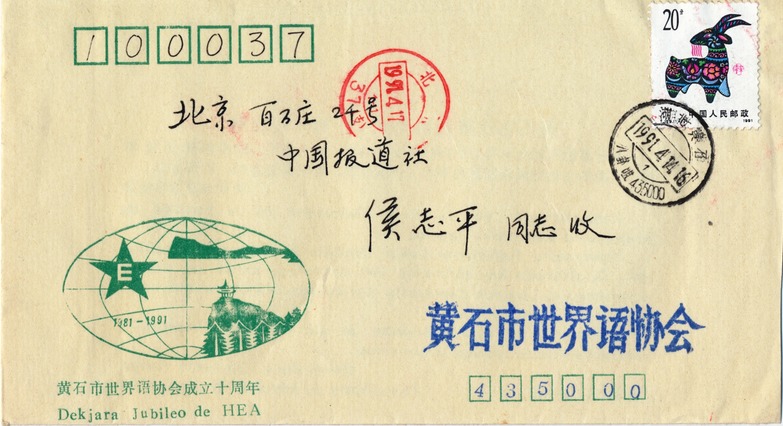 100037
20分
中国人民邮政
1991
北
1991.4.17
37支
湖北黄石
1991.4.14.16
435000
北京 百万庄 24号
中国报道社
侯志平 同志 收
E
1981-1991
黄石市世界语协会成立十周年
Dekjara Jubileo de HEA
黄石市世界语协会
435000